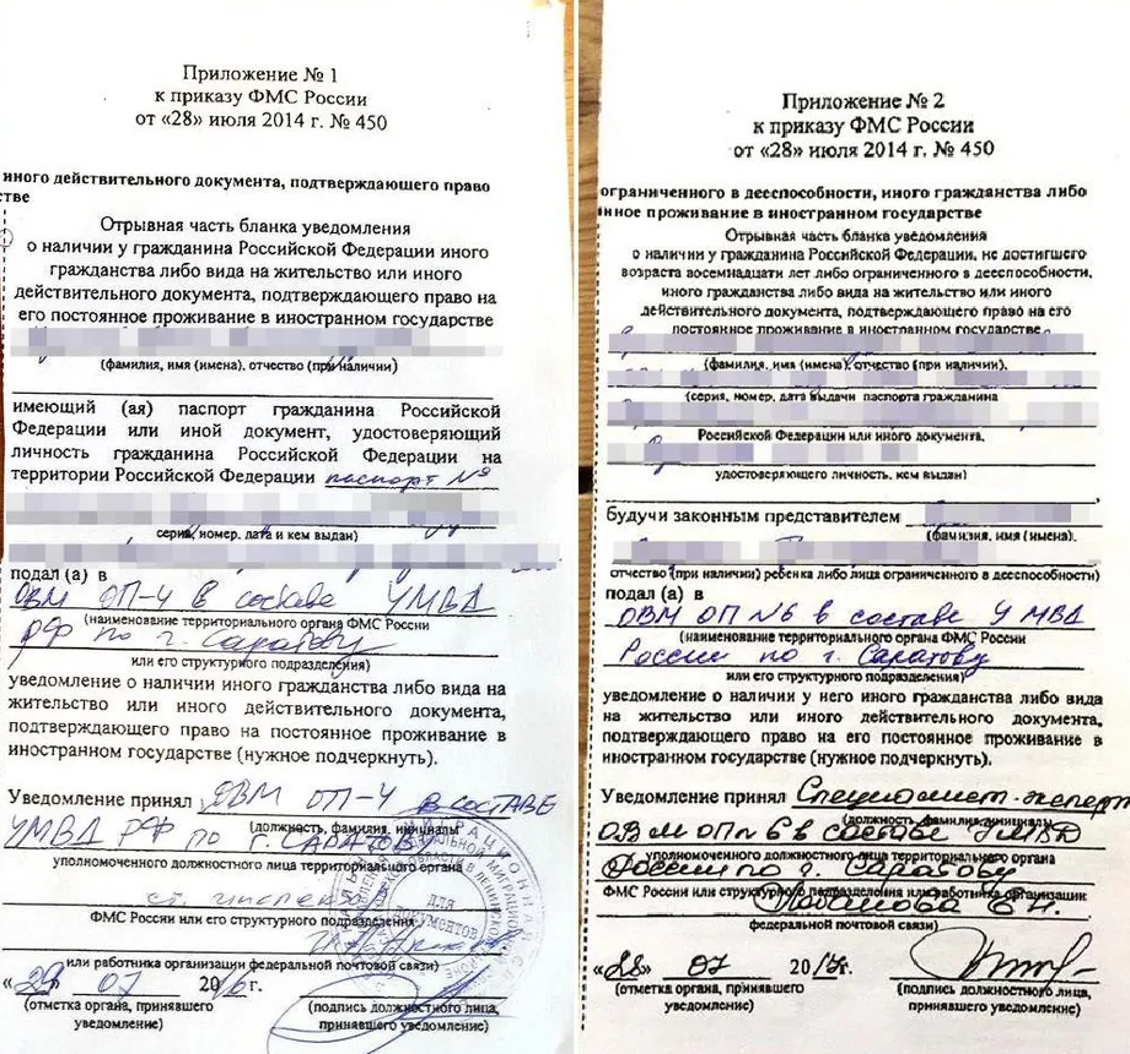 Приложение № 1
к приказу ФМС России
от «28» июля 2014 г. № 450
иного действительного документа, подтверждающего право
стве
Отрывная часть бланка уведомления
о наличии у гражданина Российской Федерации иного
гражданства либо вида на жительство или иного
действительного документа, подтверждающего право на
его постоянное проживание в иностранном государстве
(фамилия, имя (имена), отчество (при наличии)
имеющий (ая) паспорт гражданина Российской
Федерации или иной документ, удостоверяющий
личность гражданина Российской Федерации на
территории Российской Федерации паспорт №
серия, номер, дата и кем выдан)
подал (а) в
ОВМ ОП-4 в составе УМВД
(наименование территориального органа ФМС России
РФ по г. Саратову
или его структурного подразделения)
уведомление о наличии иного гражданства либо вида на
жительство или иного действительного документа,
подтверждающего право на постоянное проживание в
иностранном государстве (нужное подчеркнуть).
Уведомление принял ОВМ ОП-4 в составе
(должность, фамилия, инициалы
УМВД РФ по г. Саратову
уполномоченного должностного лица территориального органа
ст. инспектор
ФМС России или его структурного подразделения
или работника организации федеральной почтовой связи)
«29» 07 2016 г.
(отметка органа, принявшего
уведомление)
(подпись должностного лица,
принявшего уведомление)
для
документов
Приложение № 2
к приказу ФМС России
от «28» июля 2014 г. № 450
ограниченного в дееспособности, иного гражданства либо
нное проживание в иностранном государстве
Отрывная часть бланка уведомления
о наличии у гражданина Российской Федерации, не достигшего
возраста восемнадцати лет либо ограниченного в дееспособности,
иного гражданства либо вида на жительство или иного
действительного документа, подтверждающего право на его
постоянное проживание в иностранном государстве
(фамилия, имя (имена), отчество (при наличии),
(серия, номер, дата выдачи паспорта гражданина
Российской Федерации или иного документа,
удостоверяющего личность, кем выдан)
будучи законным представителем
(фамилия, имя (имена),
отчество (при наличии) ребенка либо лица ограниченного в дееспособности)
подал (а) в
ОВМ ОП №6 в составе УМВД
(наименование территориального органа ФМС России
России по г. Саратову
или его структурного подразделения)
уведомление о наличии у него иного гражданства либо вида
на жительство или иного действительного документа,
подтверждающего право на его постоянное проживание в
иностранном государстве (нужное подчеркнуть).
Уведомление принял Специалист-эксперт
(должность, фамилия, инициалы
ОВМ ОП №6 в составе УМВД
уполномоченного должностного лица территориального органа
России по г. Саратову
ФМС России или структурного подразделения или работника организации
федеральной почтовой связи)
«28» 07 2017г.
(отметка органа, принявшего
уведомление)
(подпись должностного лица,
принявшего уведомление)